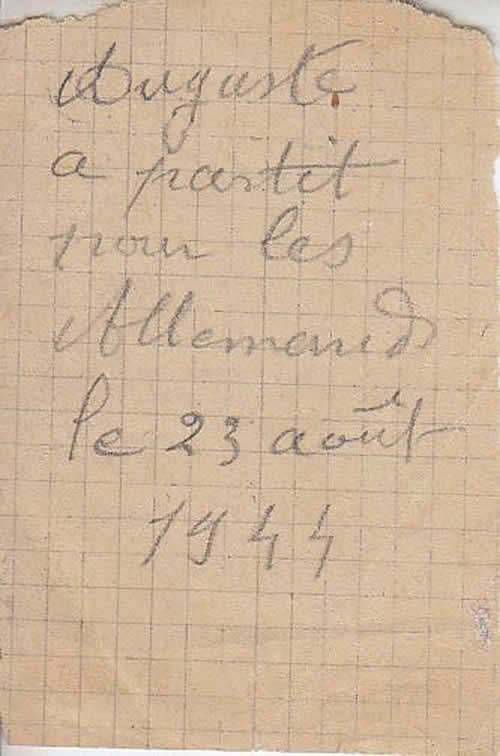 Auguste
a partit
pour les
Allemands
le 23 août
1944